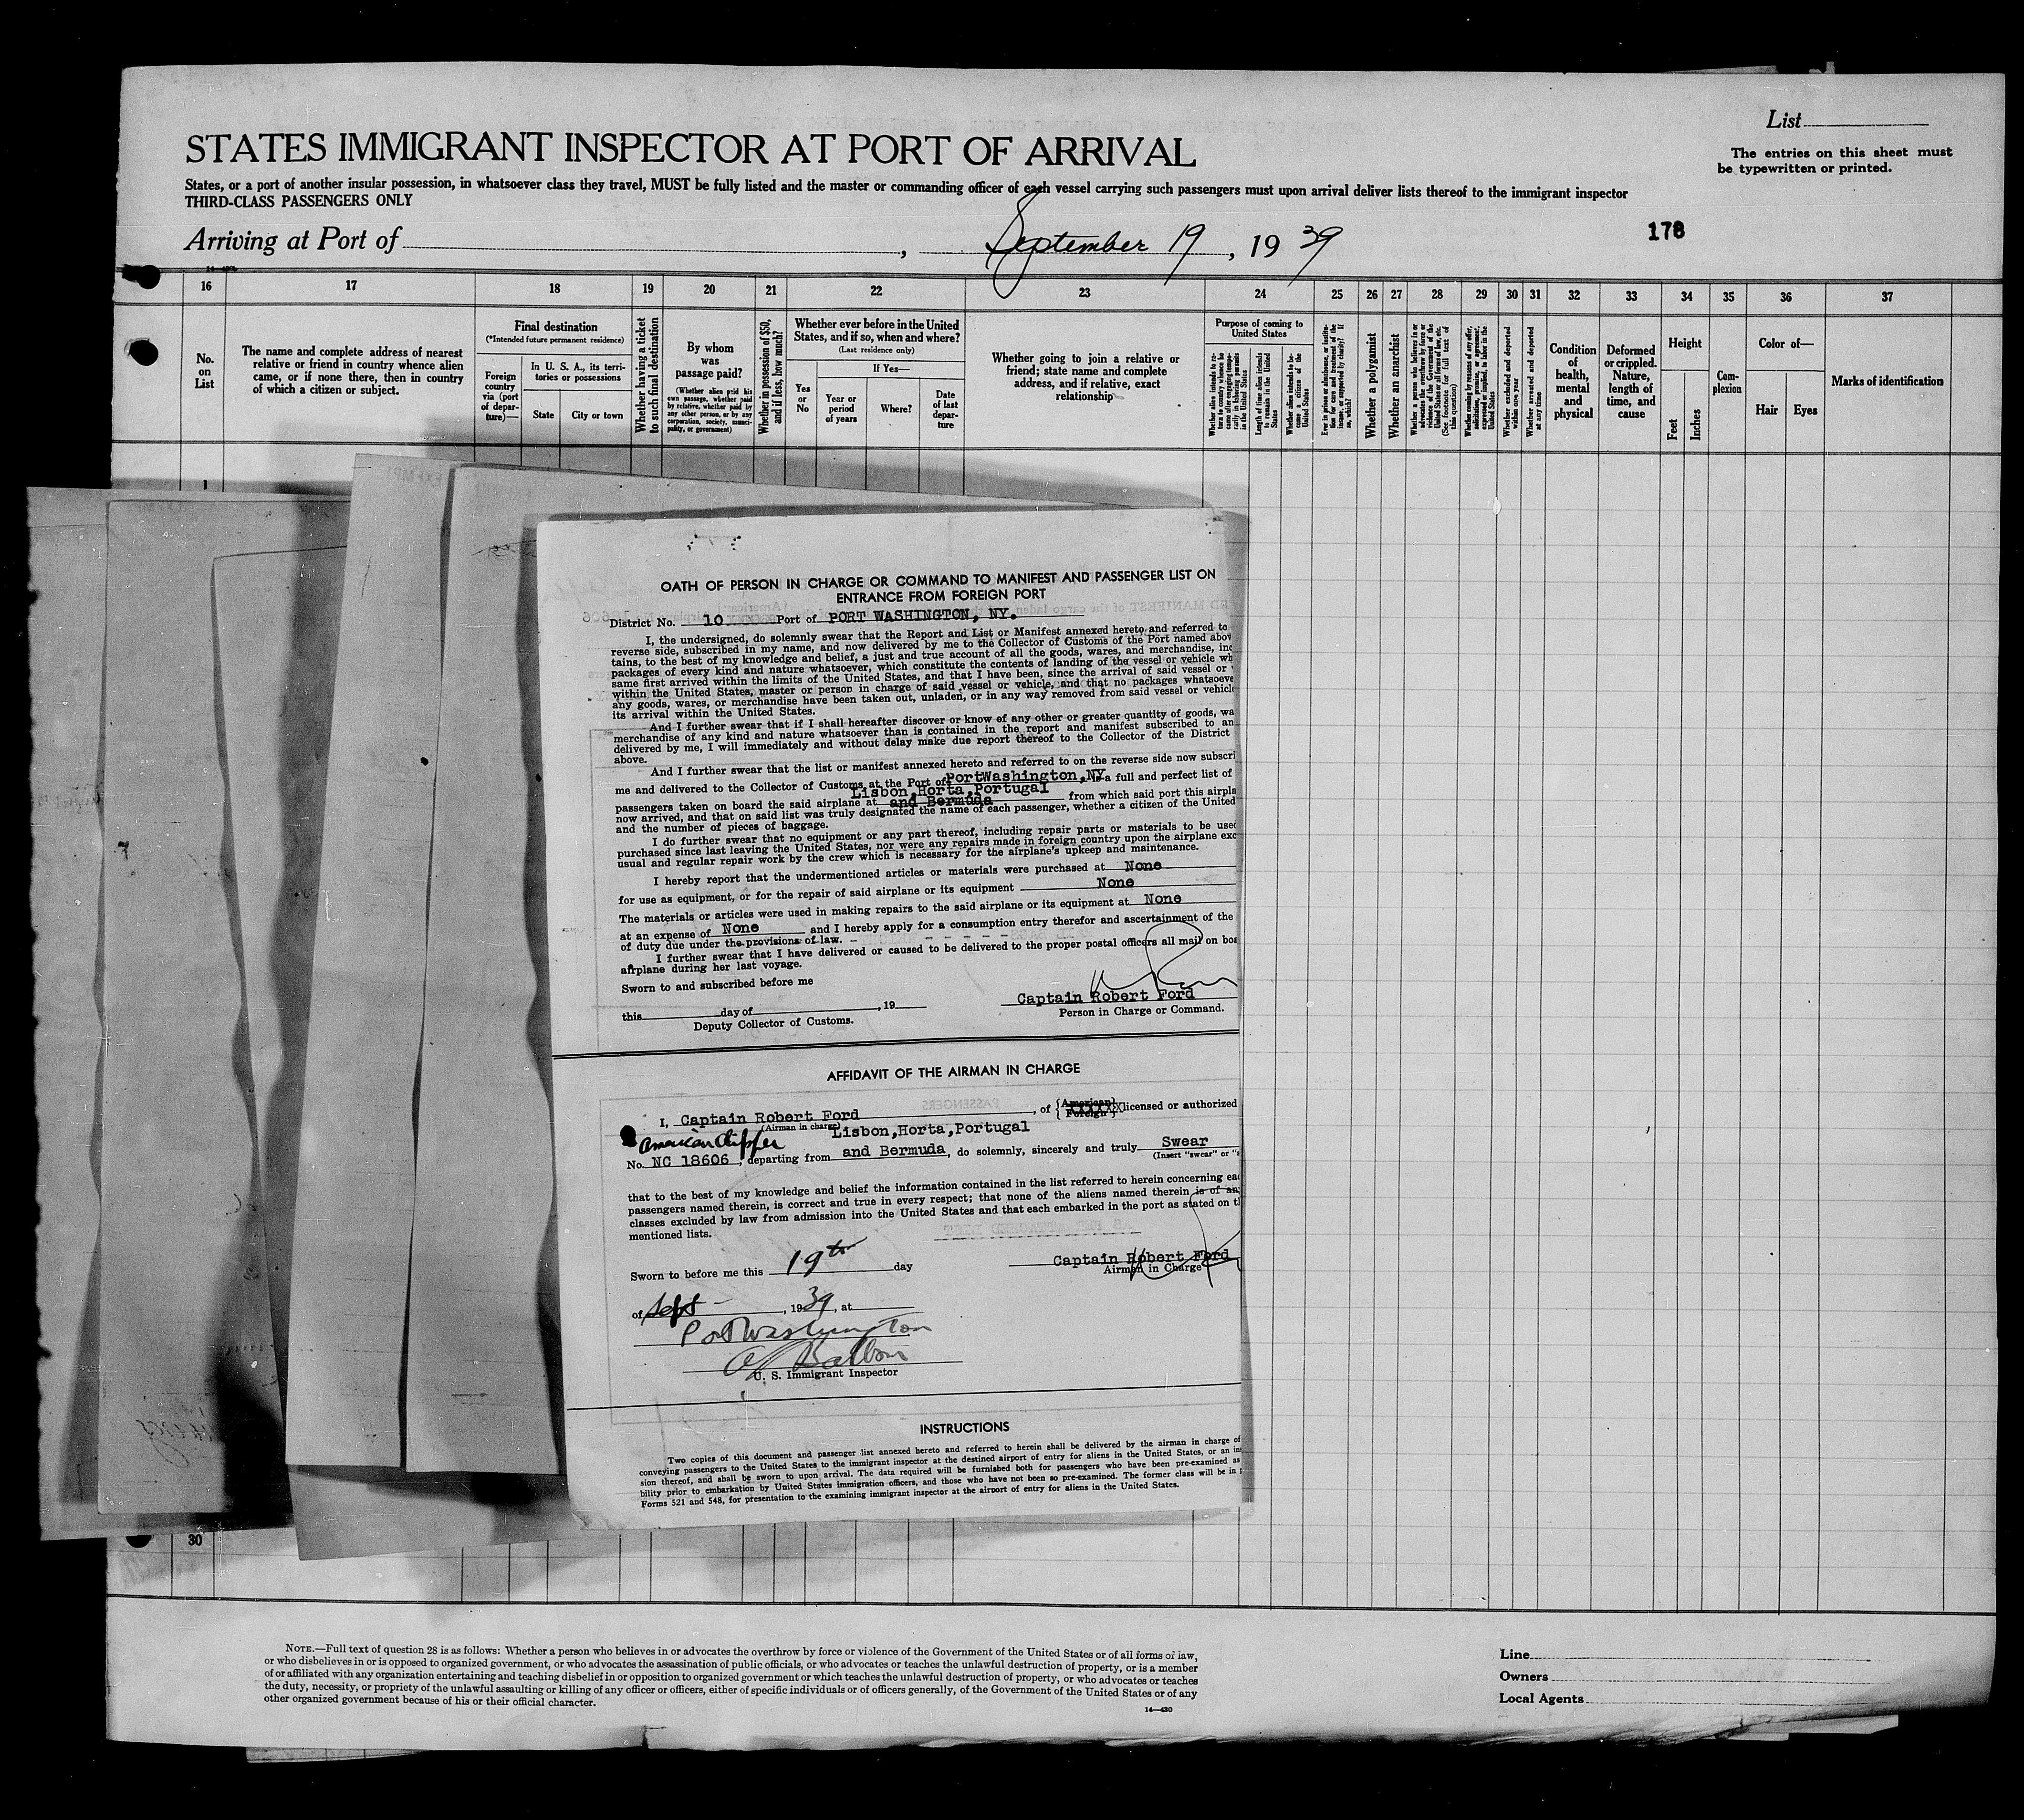 List
STATES IMMIGRANT INSPECTOR AT PORT OF ARRIVAL
The entries on this sheet must
be typewritten or printed.
States, or a port of another insular possession, in whatsoever class they travel, MUST be fully listed and the master or commanding officer of each vessel carrying such passengers must upon arrival deliver lists thereof to the immigrant inspector
THIRD-CLASS PASSENGERS ONLY
Arriving at Port of , September 19, 1939
178
16 17 18 19 20 21 22 23 24 25 26 27 28 29 30 31 32 33 34 35 36 37
No. on List
The name and complete address of nearest
relative or friend in country whence alien
came, or if none there, then in country
of which a citizen or subject.
Final destination
(*Intended future permanent residence)
Foreign
country
via (port
of depar-
ture)—
In U. S. A., its terri-
tories or possessions
State
City or town
Whether having a ticket
to such final destination
By whom
was
passage paid?
(Whether alien paid his
own passage, whether paid
by relative, whether paid by
any other person, or by any
corporation, society, munici-
pality, or government)
Whether in possession of $50,
and if less, how much?
Whether ever before in the United
States, and if so, when and where?
(Last residence only)
If Yes—
Yes
or
No
Year or
period
of years
Where?
Date
of last
depar-
ture
Whether going to join a relative or
friend; state name and complete
address, and if relative, exact
relationship
Purpose of coming to
United States
Whether alien intends to re-
turn to country whence he
came after engaging tempo-
rarily in laboring pursuits
in the United States
Length of time alien intends
to remain in the United
States
Whether alien intends to be-
come a citizen of the
United States
Ever in prison or almshouse, or institu-
tion for care and treatment of the
insane, or supported by charity? If
so, which?
Whether a polygamist
Whether an anarchist
Whether a person who believes in or
advocates the overthrow by force or
violence of the Government of the
United States or all forms of law, etc.
(See footnote for full text of
this question)
Whether coming by reasons of any offer,
solicitation, promise, or agreement,
expressed or implied, to labor in the
United States
Whether excluded and deported
within one year
Whether arrested and deported
at any time
Condition
of
health,
mental
and
physical
Deformed
or crippled.
Nature,
length of
time, and
cause
Height
Feet
Inches
Com-
plexion
Color of—
Hair
Eyes
Marks of identification
OATH OF PERSON IN CHARGE OR COMMAND TO MANIFEST AND PASSENGER LIST ON
ENTRANCE FROM FOREIGN PORT
District No. 10 Port of PORT WASHINGTON, NY.
I, the undersigned, do solemnly swear that the Report and List or Manifest annexed hereto and referred to
reverse side, subscribed in my name, and now delivered by me to the Collector of Customs of the Port named abov
tains, to the best of my knowledge and belief, a just and true account of all the goods, wares, and merchandise, inc
packages of every kind and nature whatsoever, which constitute the contents of landing of the vessel or vehicle wh
same first arrived within the limits of the United States, and that I have been, since the arrival of said vessel or
within the United States, master or person in charge of said vessel or vehicle, and that no packages whatsoeve
any goods, wares, or merchandise have been taken out, unladen, or in any way removed from said vessel or vehicl
its arrival within the United States.
And I further swear that if I shall hereafter discover or know of any other or greater quantity of goods, wa
merchandise of any kind and nature whatsoever than is contained in the report and manifest subscribed to an
delivered by me, I will immediately and without delay make due report thereof to the Collector of the District
above.
And I further swear that the list or manifest annexed hereto and referred to on the reverse side now subscri
me and delivered to the Collector of Customs at the Port of PortWashington,NY is a full and perfect list of
Lisbon,Horta,Portugal
passengers taken on board the said airplane at and Bermuda from which said port this airpla
now arrived, and that on said list was truly designated the name of each passenger, whether a citizen of the United
and the number of pieces of baggage.
I do further swear that no equipment or any part thereof, including repair parts or materials to be used
purchased since last leaving the United States, nor were any repairs made in foreign country upon the airplane exc
usual and regular repair work by the crew which is necessary for the airplane's upkeep and maintenance.
I hereby report that the undermentioned articles or materials were purchased at None
for use as equipment, or for the repair of said airplane or its equipment None
The materials or articles were used in making repairs to the said airplane or its equipment at None
at an expense of None and I hereby apply for a consumption entry therefor and ascertainment of the
of duty due under the provisions of law.
I further swear that I have delivered or caused to be delivered to the proper postal officers all mail on boa
airplane during her last voyage.
Sworn to and subscribed before me
Captain Robert Ford
this day of , 19
Person in Charge or Command.
Deputy Collector of Customs.
AFFIDAVIT OF THE AIRMAN IN CHARGE
I, Captain Robert Ford , of {American Foreign} licensed or authorized
(Airman in charge)
American Clipper Lisbon,Horta,Portugal
No. NC 18606, departing from and Bermuda, do solemnly, sincerely and truly Swear
(Insert "swear" or "a
that to the best of my knowledge and belief the information contained in the list referred to herein concerning ea
passengers named therein, is correct and true in every respect; that none of the aliens named therein is of an
classes excluded by law from admission into the United States and that each embarked in the port as stated on t
mentioned lists.
Captain Robert Ford
Airman in Charge
Sworn to before me this 19th day
of Sept - , 1939, at
Port Washington
U. S. Immigrant Inspector
INSTRUCTIONS
Two copies of this document and passenger list annexed hereto and referred to herein shall be delivered by the airman in charge of
conveying passengers to the United States to the immigrant inspector at the destined airport of entry for aliens in the United States, or an in
sion thereof, and shall be sworn to upon arrival. The data required will be furnished both for passengers who have been pre-examined as
bility prior to embarkation by United States immigration officers, and those who have not been so pre-examined. The former class will be in
Forms 521 and 548, for presentation to the examining immigrant inspector at the airport of entry for aliens in the United States.
30
NOTE.—Full text of question 28 is as follows: Whether a person who believes in or advocates the overthrow by force or violence of the Government of the United States or of all forms of law,
or who disbelieves in or is opposed to organized government, or who advocates the assassination of public officials, or who advocates or teaches the unlawful destruction of property, or is a member
of or affiliated with any organization entertaining and teaching disbelief in or opposition to organized government or which teaches the unlawful destruction of property, or who advocates or teaches
the duty, necessity, or propriety of the unlawful assaulting or killing of any officer or officers, either of specific individuals or of officers generally, of the Government of the United States or of any
other organized government because of his or their official character.
14—430
Line
Owners
Local Agents